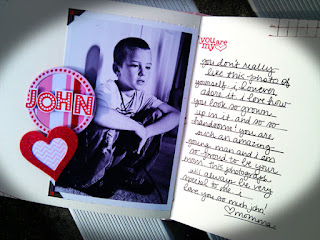 JOHN
you are
my
you don't really
like this photo of
yourself. i however
adore it. i love how
you look so grown
up in it and so so
handsome! you are
such an amazing
young man and i am
so proud to be your
mom. this photograph
will always be very
special to me. i
love you so much john!
♡momma